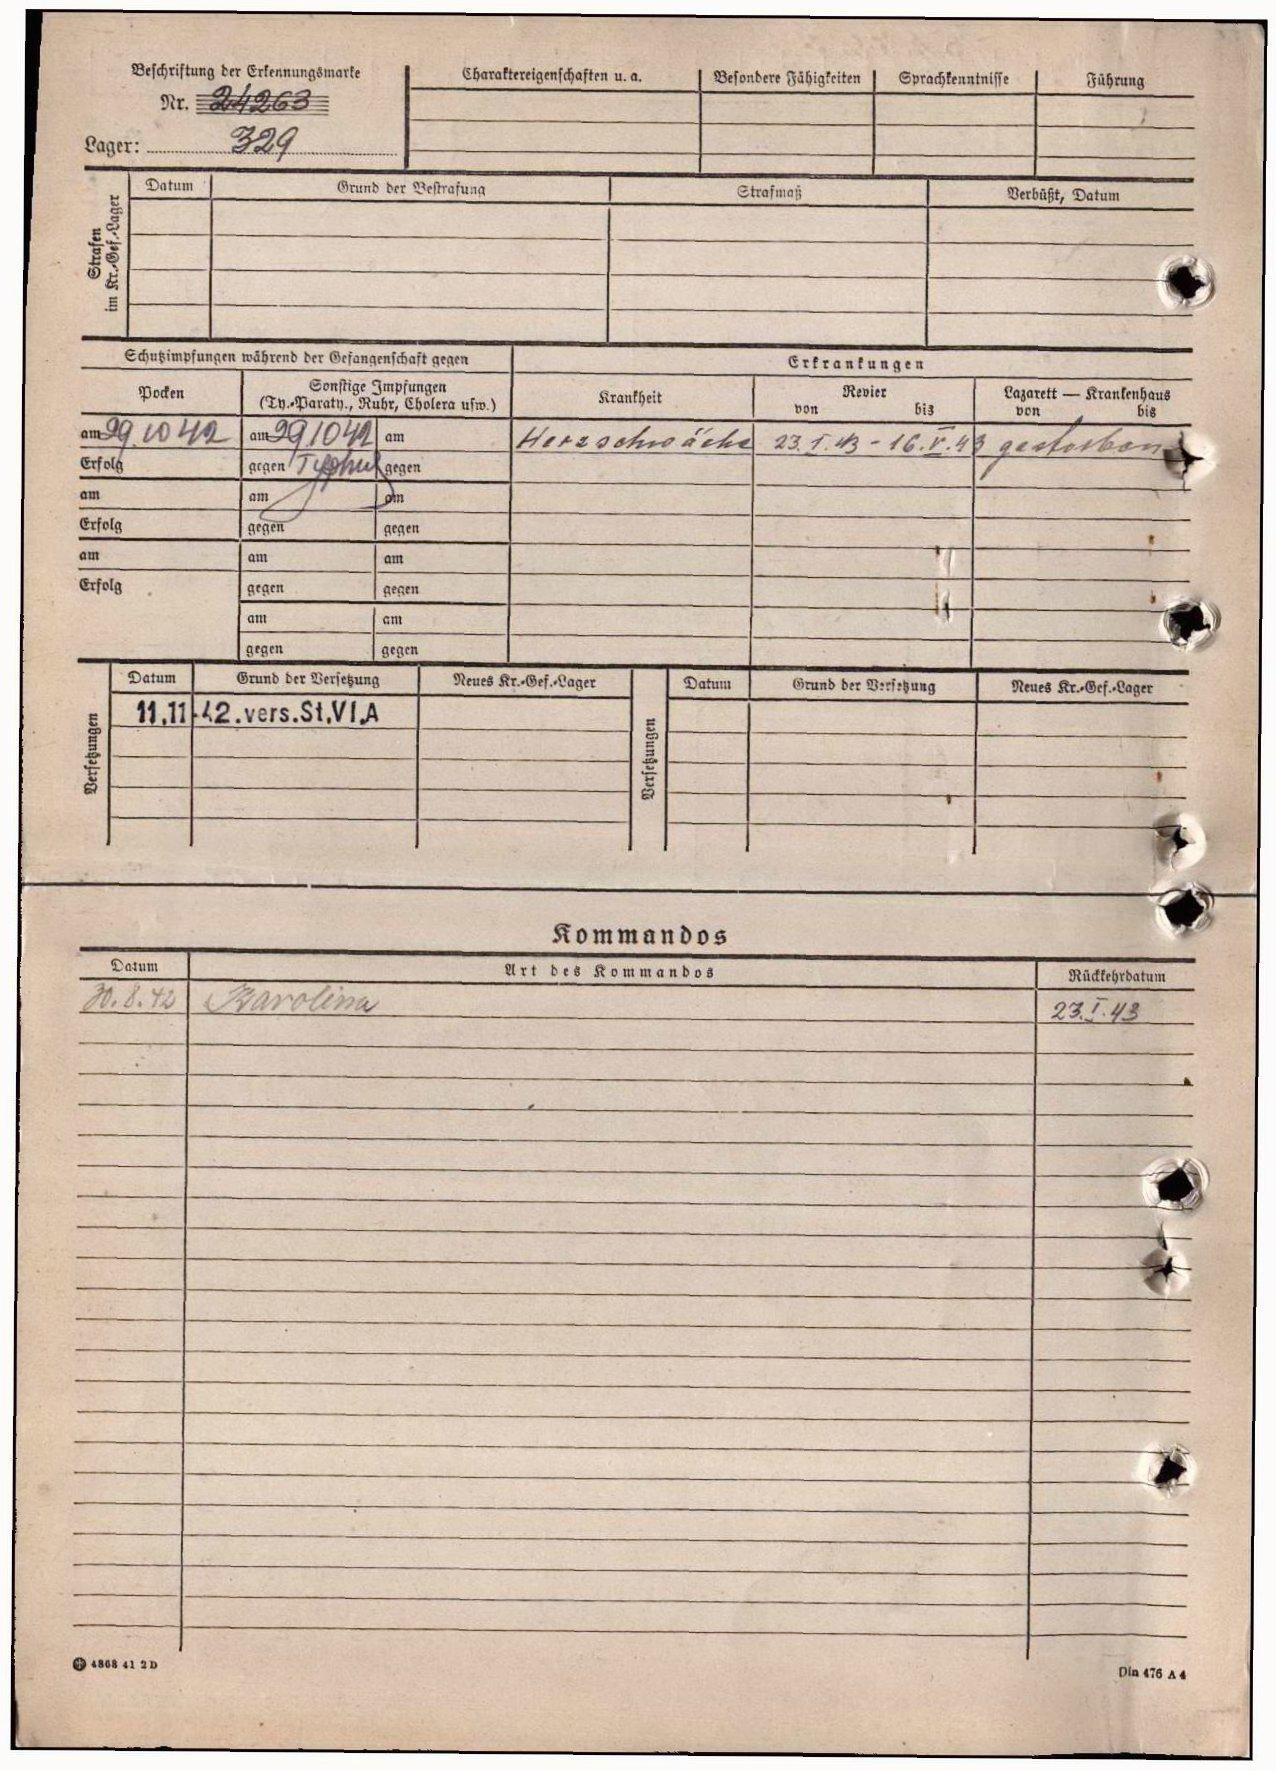 Beschriftung der Erkennungsmarke
Nr. 24263
Lager: 329
Charaktereigenschaften u. a.
Besondere Fähigkeiten
Sprachkenntnisse
Führung
Strafen
im Kr.-Gef.-Lager
Datum
Grund der Bestrafung
Strafmaß
Verbüßt, Datum
Schutzimpfungen während der Gefangenschaft gegen
Erkrankungen
Pocken
Sonstige Impfungen
(Ty.-Paraty., Ruhr, Cholera usw.)
Krankheit
Revier
von bis
Lazarett — Krankenhaus
von bis
am 29.10 42 am 291042 am
Herzschwäche 23.I.43 - 16.V.43 gestorben
Erfolg gegen Typhus gegen
am am am
Erfolg gegen gegen
am am am
Erfolg gegen gegen
am am
gegen gegen
Versetzungen
Datum Grund der Versetzung Neues Kr.-Gef.-Lager
11.11.42.vers.St.VI.A
Versetzungen
Datum Grund der Versetzung Neues Kr.-Gef.-Lager
Kommandos
Datum Art des Kommandos Rückkehrdatum
30.8.42 Karolina 23.I.43
4868 41 2 D
Din 476 A 4